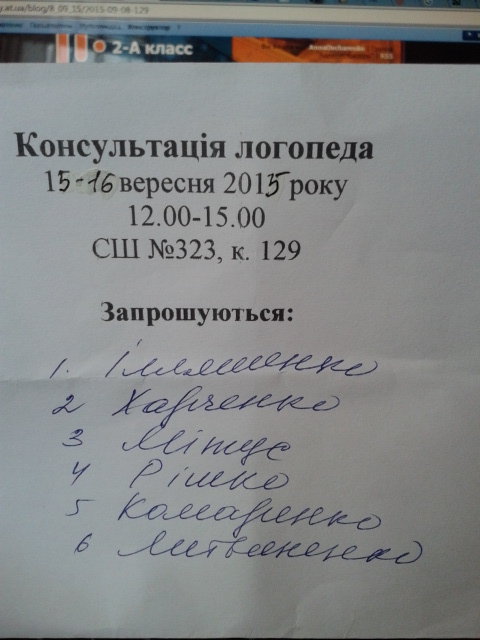 y.at.ua/blog/8_09_15/2015-09-08-129
2-А класс
Консультація логопеда
15-16 вересня 2015 року
12.00-15.00
СШ №323, к. 129
Запрошуються:
1. Ілляшенко
2 Харченко
3 Мітус
4 Рішко
5 Комаренко
6 Литвиненко